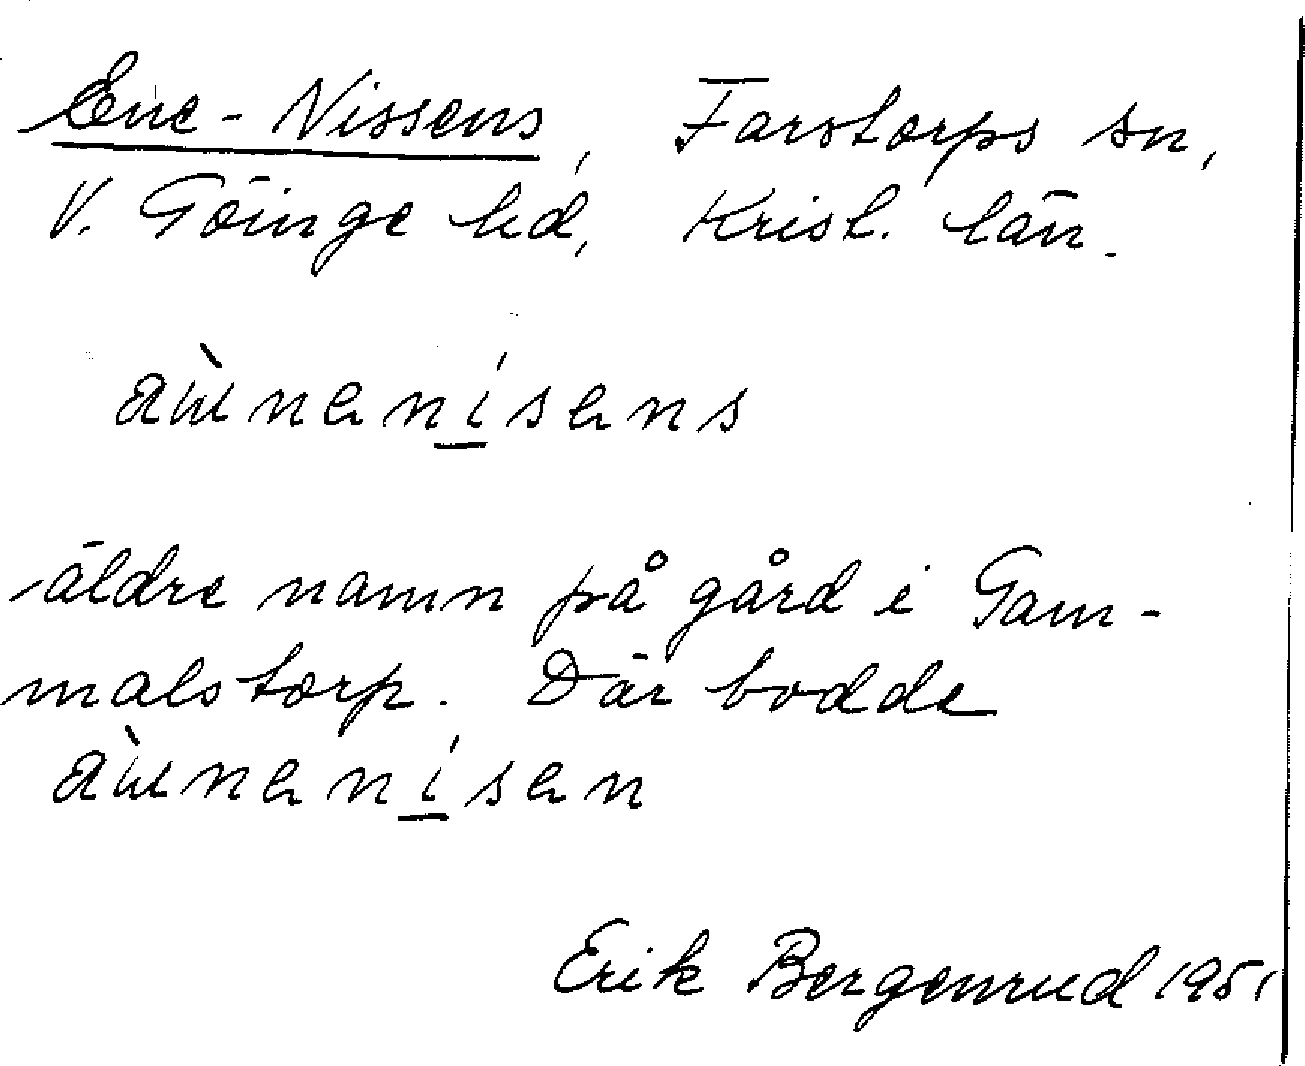 Ene-Nissens, Farstorps sn,
V. Göinge hd, Krist. län.
äldre namn på gård i Gam-
malstorp. Där bodde
Erik Bergenrud 1951